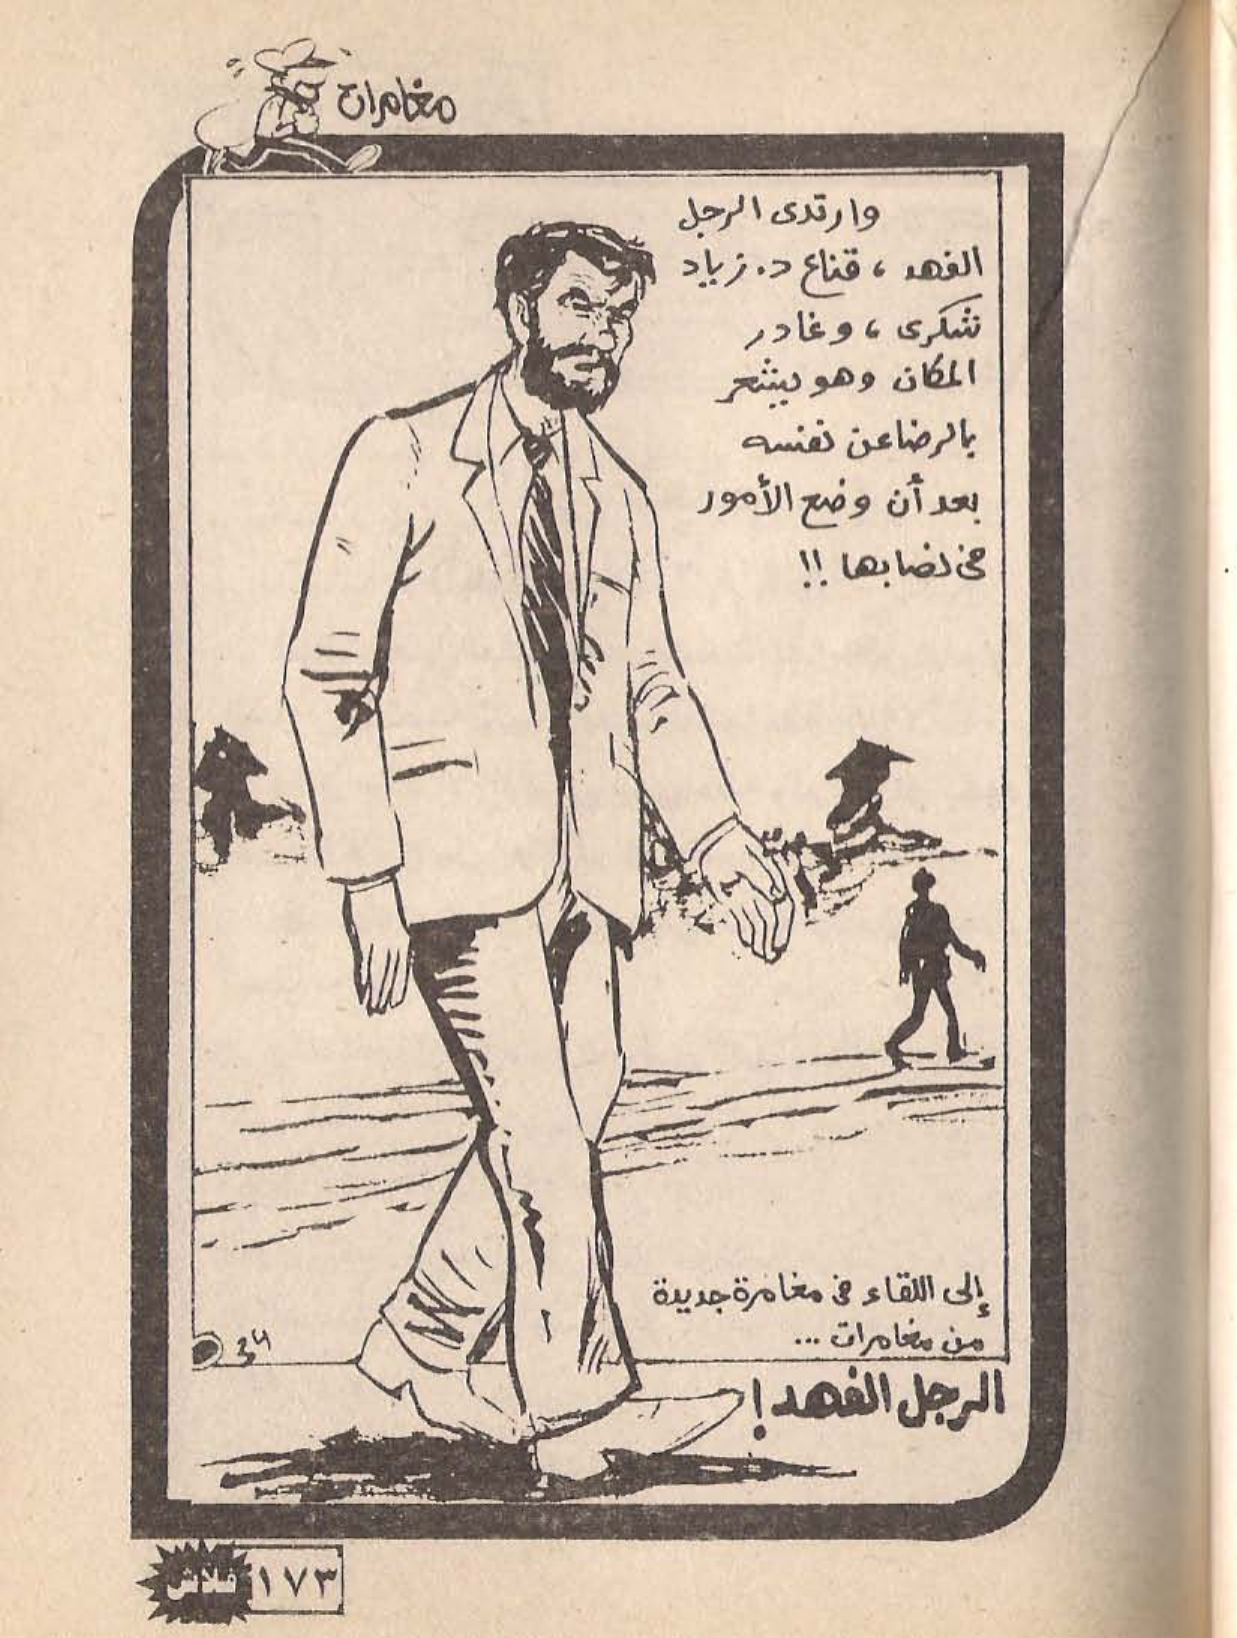 مغامرات
وارتدى الرجل
الفهد ، قناع د. زياد
شكرى ، وغادر
المكان وهو يشعر
بالرضا عن نفسه
بعد أن وضع الأمور
فى نصابها !!
إلى اللقاء فى مغامرة جديدة
من مغامرات ...
الرجل الفهد !
34
فلاش ١٧٣